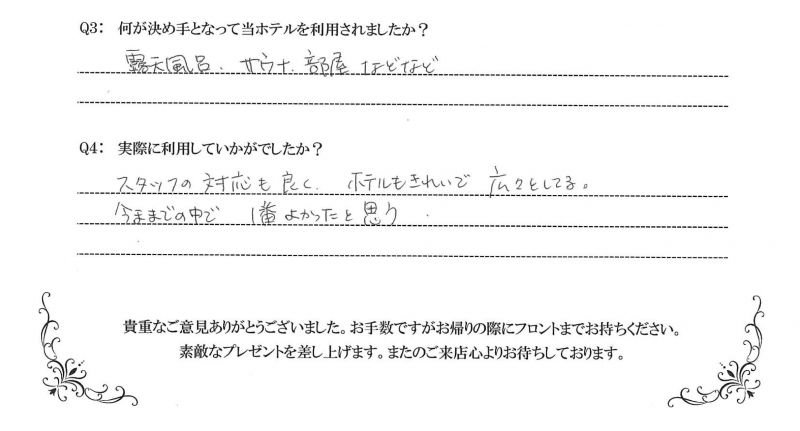 Q3： 何が決め手となって当ホテルを利用されましたか？
露天風呂、サウナ、部屋 などなど
Q4： 実際に利用していかがでしたか？
スタッフの対応も良く、ホテルもきれいで 広々としてる。
今までの中で 1番よかったと思う.
貴重なご意見ありがとうございました。お手数ですがお帰りの際にフロントまでお持ちください。
素敵なプレゼントを差し上げます。またのご来店心よりお待ちしております。